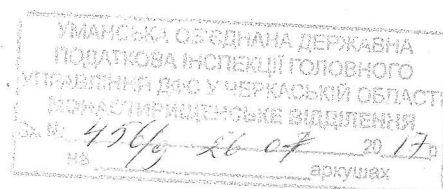 УМАНСЬКА ОБ'ЄДНАНА ДЕРЖАВНА
ПОДАТКОВА ІНСПЕКЦІЇ ГОЛОВНОГО
УПРАВЛІННЯ ДФС У ЧЕРКАСЬКІЙ ОБЛАСТІ
МОНАСТИРИЩЕНСЬКЕ ВІДДІЛЕННЯ
Вх. № 26 07 20 17 р
на аркушах